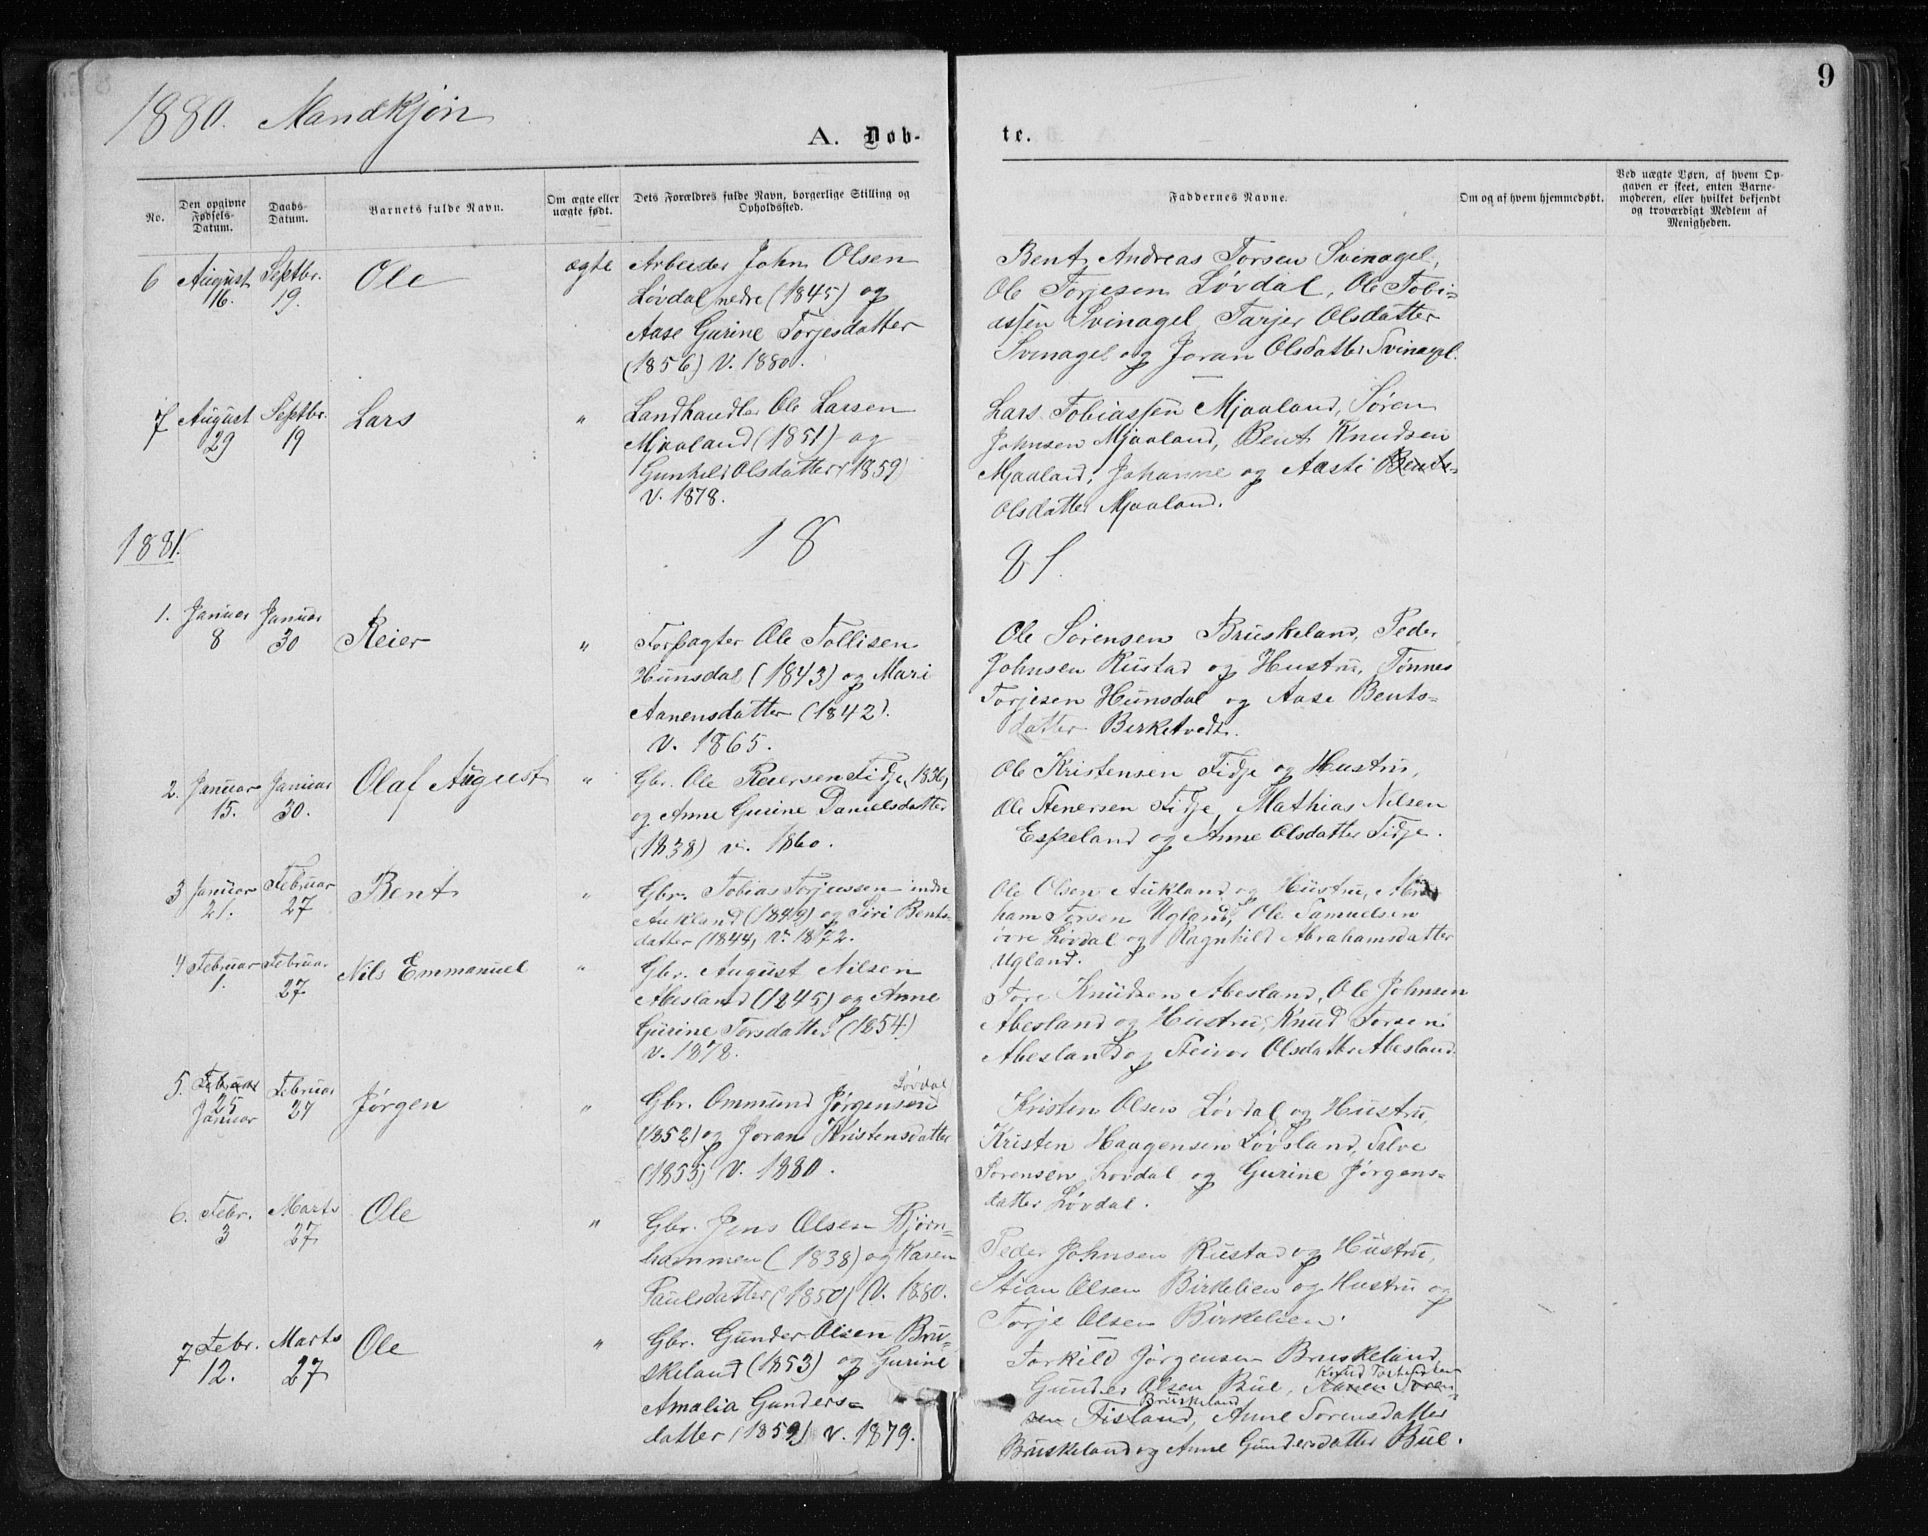 9
1880. Mandkjøn
A. Døb-
te.
No.
Den opgivne Fødsels-Datum.
Daabs-Datum.
Barnets fulde Navn.
Om ægte eller uægte født.
Dets Forældres fulde Navn, borgerlige Stilling og Opholdssted.
Faddernes Navne.
Om og af hvem hjemmedøbt.
Ved uægte Børn, af hvem Opgaven er skeet, enten Barnemoderen, eller hvilket bekjendt og troværdigt Medlem af Menigheden.
6 August 16. Septbr. 19. Ole ægte
Arbeider John Olsen
Løvdal nedre (1845) og
Aase Gurine Torjesdatter
(1856) V. 1880.
Bent Andreas Torsen Svinagel,
Ole Torjesen Løvdal, Ole Tobi-
assen Svinagel Tarjer Olsdatter
Svinagel og Joran Olsdatter Svinagel.
7 August 29 Septbr. 19 Lars "
Landhandler Ole Larsen
Mjaaland (1851) og
Gunhild Olsdatter (1859)
V. 1878.
Lars Tobiassen Mjaaland, Søren
Johnsen Mjaaland, Bent Knudsen
Mjaaland, Johanne og Aasti Bents-
Olsdatter Mjaaland.
1881.
18
81.
1. Januar 8 Januar 30 Reier "
Forpagter Ole Tollisen
Hunsdal (1843) og Mari
Aanensdatter (1842).
V. 1865.
Ole Sørensen Bruskeland, Peder
Johnsen Rustad og Hustru, Tønnes
Torjesen Hunsdal og Aase Bents-
datter Birketvedt.
2. Januar 15. Januar 30. Olaf August "
Gbr. Ole Reiersen Fidje, 1836,
og Anne Gurine Danielsdatter
(1838) v. 1860.
Ole Kristensen Fidje og Hustru,
Ole Stenersen Fidje, Mathias Nilsen
Espeland og Anne Olsdatter Fidje.
3 Januar 21. Februar 27 Bent "
Gbr. Tobias Torjussen indre
Aukland (1849) og Siri Bents-
datter (1844, V. 1872.
Ole Olsen Aukland og Hustru, Abra
ham Torsen Ugland, Ole Samuelsen
øvre Løvdal og Ragnhild Abrahamsdatter
Ugland.
4 Februar 1. Februar 27. Nils Emmanuel "
Gbr. August Nilsen
Abesland (1845) og Anne
Gurine Torsdatter (1854)
v. 1878.
Tore Knudsen Abesland, Ole Johnsen
Abesland og Hustru, Knud Torsen
Abesland og Steivor Olsdatter Abesland.
5. Februar 25 Januar Februar 27 Jørgen "
Løvdal
Gbr. Ommund Jørgensen
(1852) og Joran Kristensdatter
(1855) V. 1880.
Kristen Olsen Løvdal og Hustru,
Kristen Haagensen Løvsland, Salve
Sørensen Løvdal og Gurine Jørgens-
datter Løvdal.
6. Febr. 3 Marts 27 Ole "
Gbr. Jens Olsen Bjørn-
hommen (1838) og Karen
Paulsdatter (1850) V. 1880.
Peder Johnsen Rustad og Hustru,
Stian Olsen Birkelien og Hustru og
Torje Olsen Birkelien.
7 Febr. 12. Marts 27 Ole "
Gbr. Gunder Olsen Bru-
skeland (1853) og Gurine
Amalia Gunders-
datter (1859) v. 1879.
Torkild Jørgensen Bruskeland
Knud
Gunder Olsen Bue, Aanen Søren-
Bruskeland
sen Fisland, Anne Sørensdatter
Bruskeland og Anne Gundersdatter Bue.